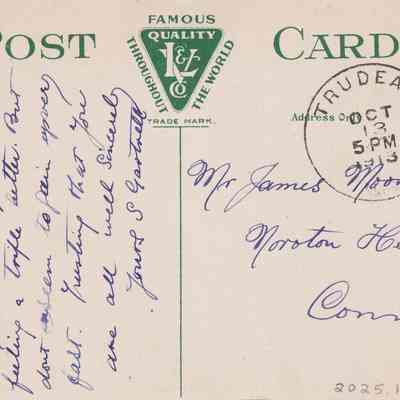 POST CARD
FAMOUS
QUALITY
THROUGHOUT THE WORLD
K&E
Co
TRADE MARK.
Address Only
TRUDEA
OCT
13
5 PM
1913
feeling a trifle better. But
dont seem to gain very
fast. Trusting that you
are all well Sincerely
Yours S
Mr James Moo
Noroton He
Conn
2025.1